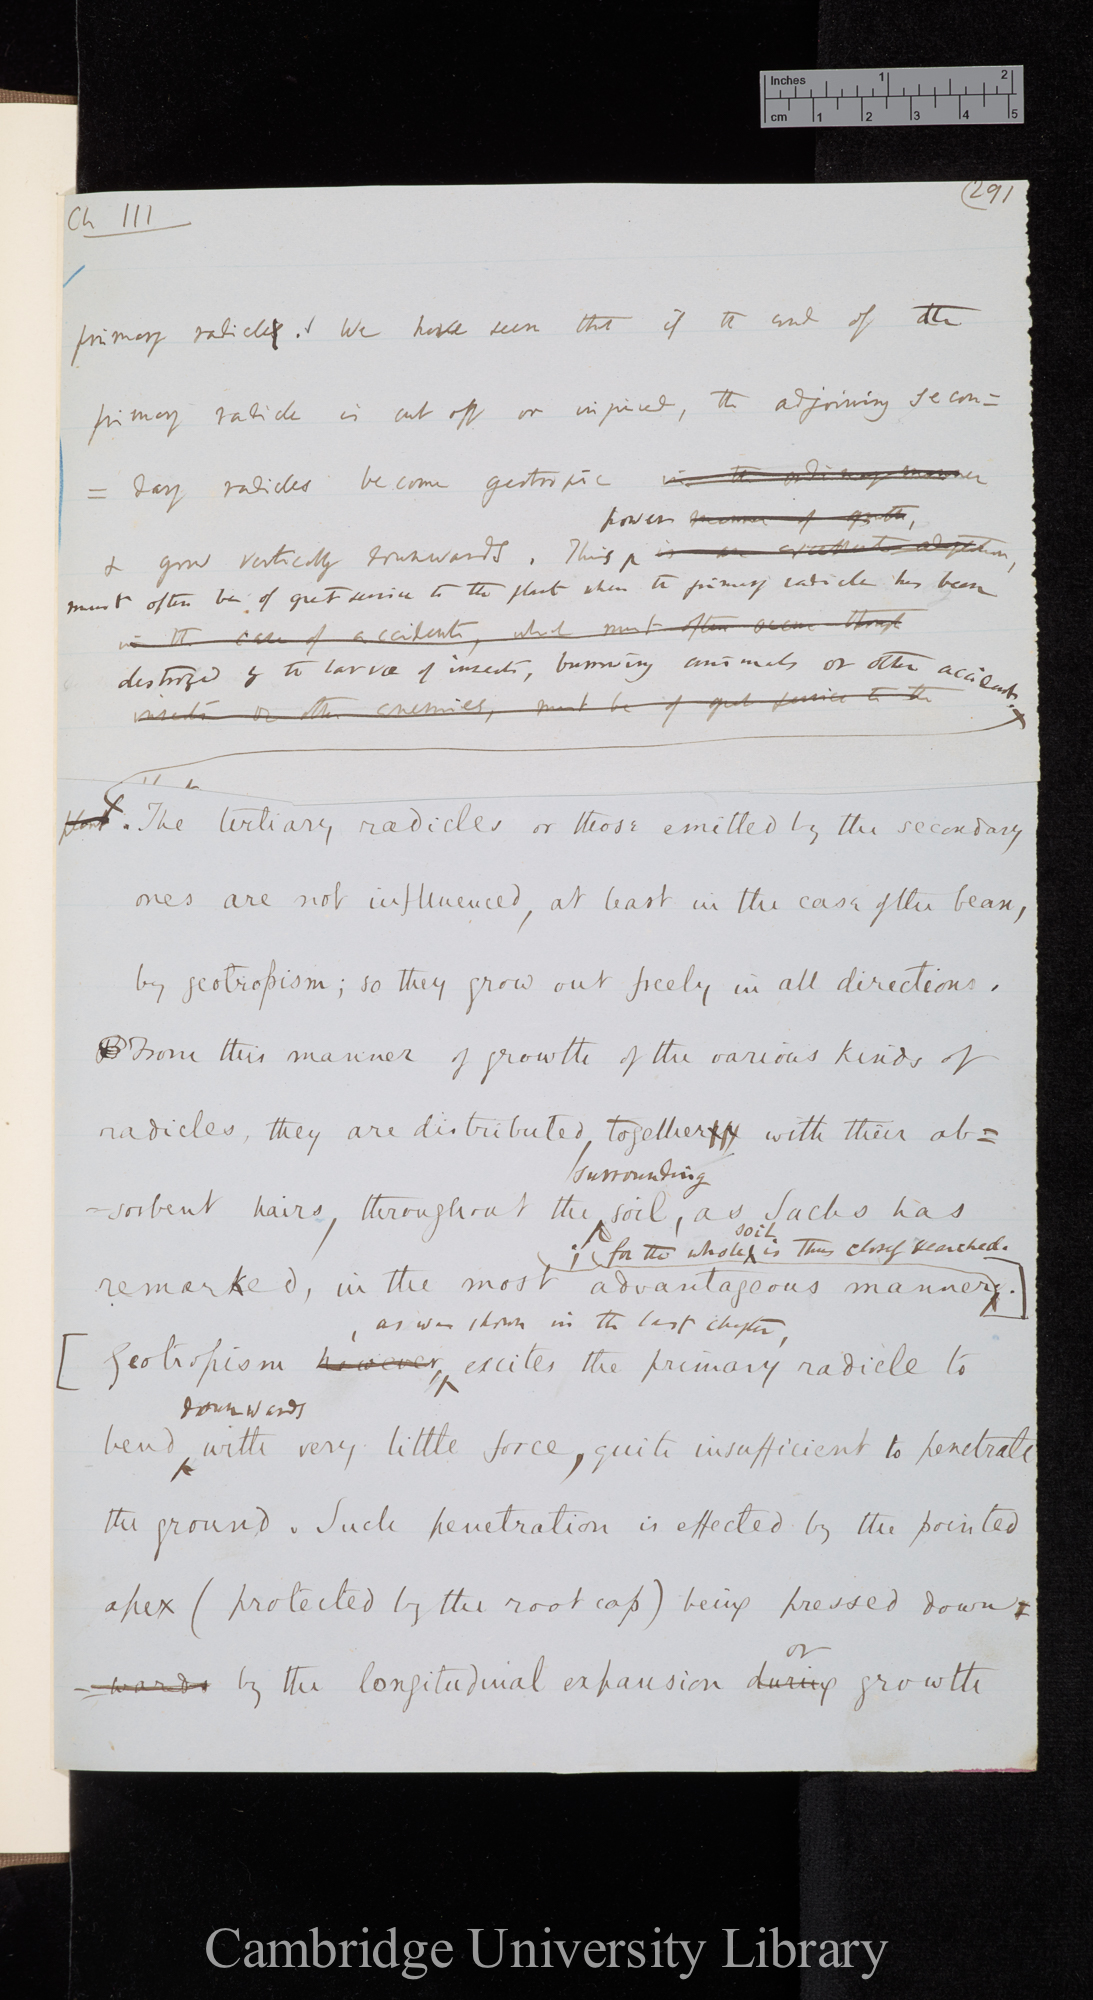 Inches 1 2
cm 1 2 3 4 5
Ch III
(291
primary radicles. We have seen that if the end of the
primary radicle is cut off or injured, the adjoining secon=
= dary radicles become geotropic in the ordinary manner
power manner of growth,
& grow vertically downwards. This is an excellent adaptation,
must often be of great service to the plant when the primary radicle has been
in the case of accidents, which must often occur through
destroyed by the larvæ of insects, burrowing animals or other accidents.
insects or other enemies, must be of great service to the
plant. The tertiary radicles or those emitted by the secondary
ones are not influenced, at least in the case of the bean,
by geotropism; so they grow out freely in all directions.
From this manner of growth of the various kinds of
radicles, they are distributed, together with their ab=
surrounding
=sorbent hairs, throughout the soil, as Sachs has
soil
; for the whole is thus closely searched.
remarked, in the most advantageous manner.
, as was shown in the last chapter,
[ Geotropism however, excites the primary radicle to
downwards
bend with very little force, quite insufficient to penetrate
the ground. Such penetration is effected by the pointed
apex (protected by the root cap) being pressed down=
or
=wards by the longitudinal expansion during growth
Cambridge University Library